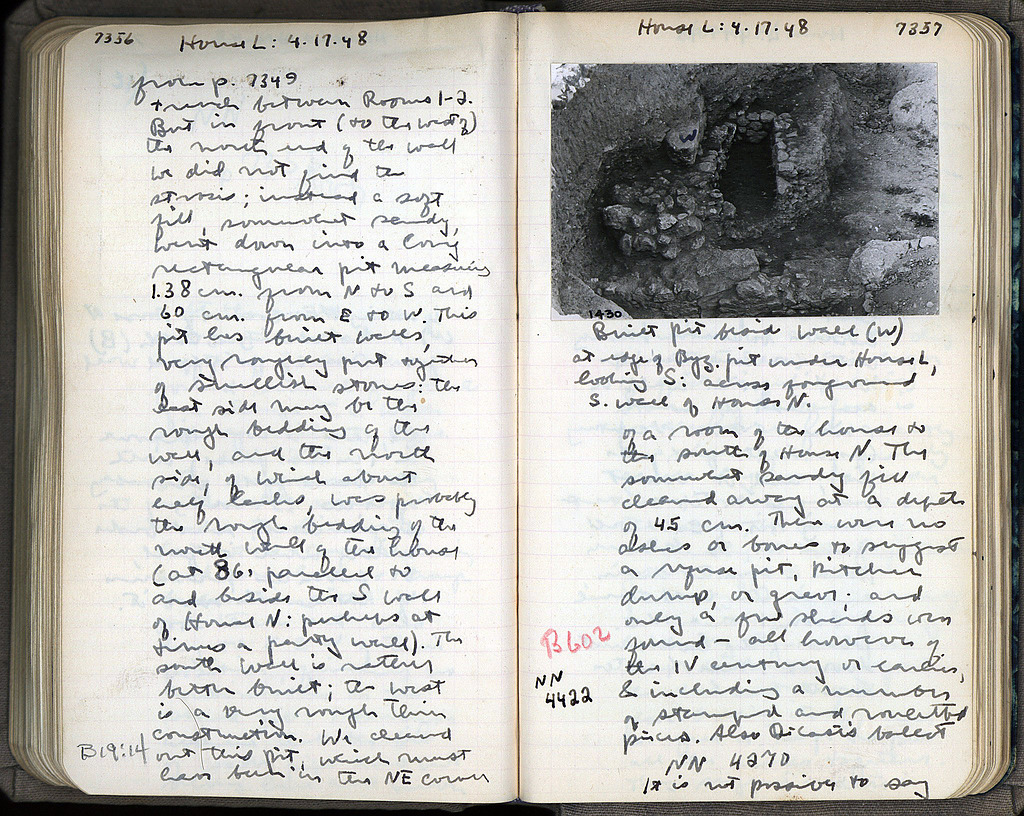 7356 House L: 4.17.48
from p. 7349
trench between Rooms 1-2.
But in front (to the west of)
the north end of the wall
we did not find the
strosis; instead a soft
fill, somewhat sandy,
went down into a long
rectangular pit measuring
1.38 cm. from N to S and
60 cm. from E to W. This
pit has built walls,
very roughly put together
of smallish stones: the
east side may be the
rough bedding of the
wall, and the north
side, of which about
half lacks, was probably
the rough bedding of the
north wall of the house
(at 86, parallel to
and beside the S wall
of House N: perhaps at
times a party wall). The
south wall is rather
better built; the west
is a very rough thin
construction. We cleaned
B 19:14 out this pit, which must
have been in the NE corner
House L: 4.17.48 7357
1430
Built pit beside wall (W)
at edge of Byz. pit under House L,
looking S: across foreground
S. wall of House N.
of a room of the house to
the south of House N. The
somewhat sandy fill
cleaned away at a depth
of 45 cm. There were no
ashes or bones to suggest
a refuse pit, kitchen
dump, or grave; and
only a few sherds were
B602 found - all however of
the IV century or earlier,
NN
4422 & including a number
of stamped and rouletted
pieces. Also Dicast's ballot
NN 4270
It is not possible to say